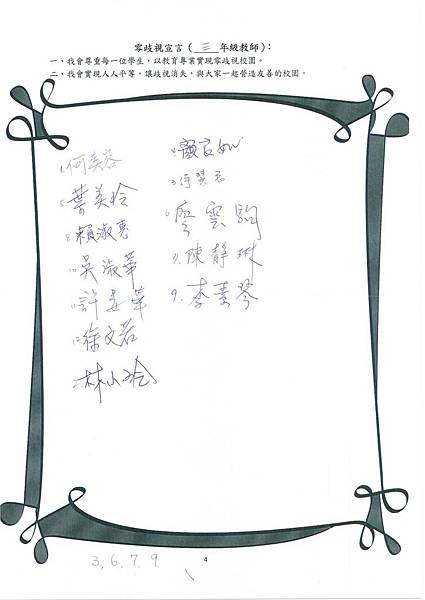 零歧視宣言（三年級教師）：
一、我會尊重每一位學生，以教育專業實現零歧視校園。
二、我會實現人人平等，讓歧視消失，與大家一起營造友善的校園。
1.何美蓉
4.顏言如
3.
5.葉美玲
6.廖雲
8.賴淑惠
7.陳靜琳
10.吳淑華
9.李素琴
11.許
12.徐文若
2.林小玲
3,6,7,9
4